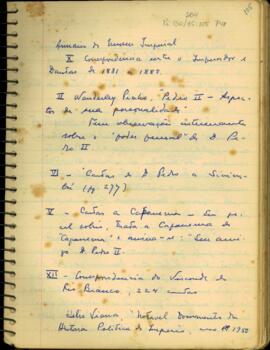 204
Anuário do Museu Imperial
X Correspondência entre o Imperador e
Dantas de 1881 a 1888.
II Wanderley Pinho, "Pedro II - Aspectos
de sua personalidade"
Tem observação interessante
sobre o "poder pessoal" de D. Pedro
II
VI - "Cartas de D. Pedro a Sinimbú"
(pg. 277)
V - Cartas a Capanema -
trata a Capanema de
"Capanema" e "Seu amigo
D. Pedro II"
XII - Correspondência do Visconde de
Rio Branco, 224 cartas
Helio Vianna, "Notável Documento da
História Política do Império, 1950